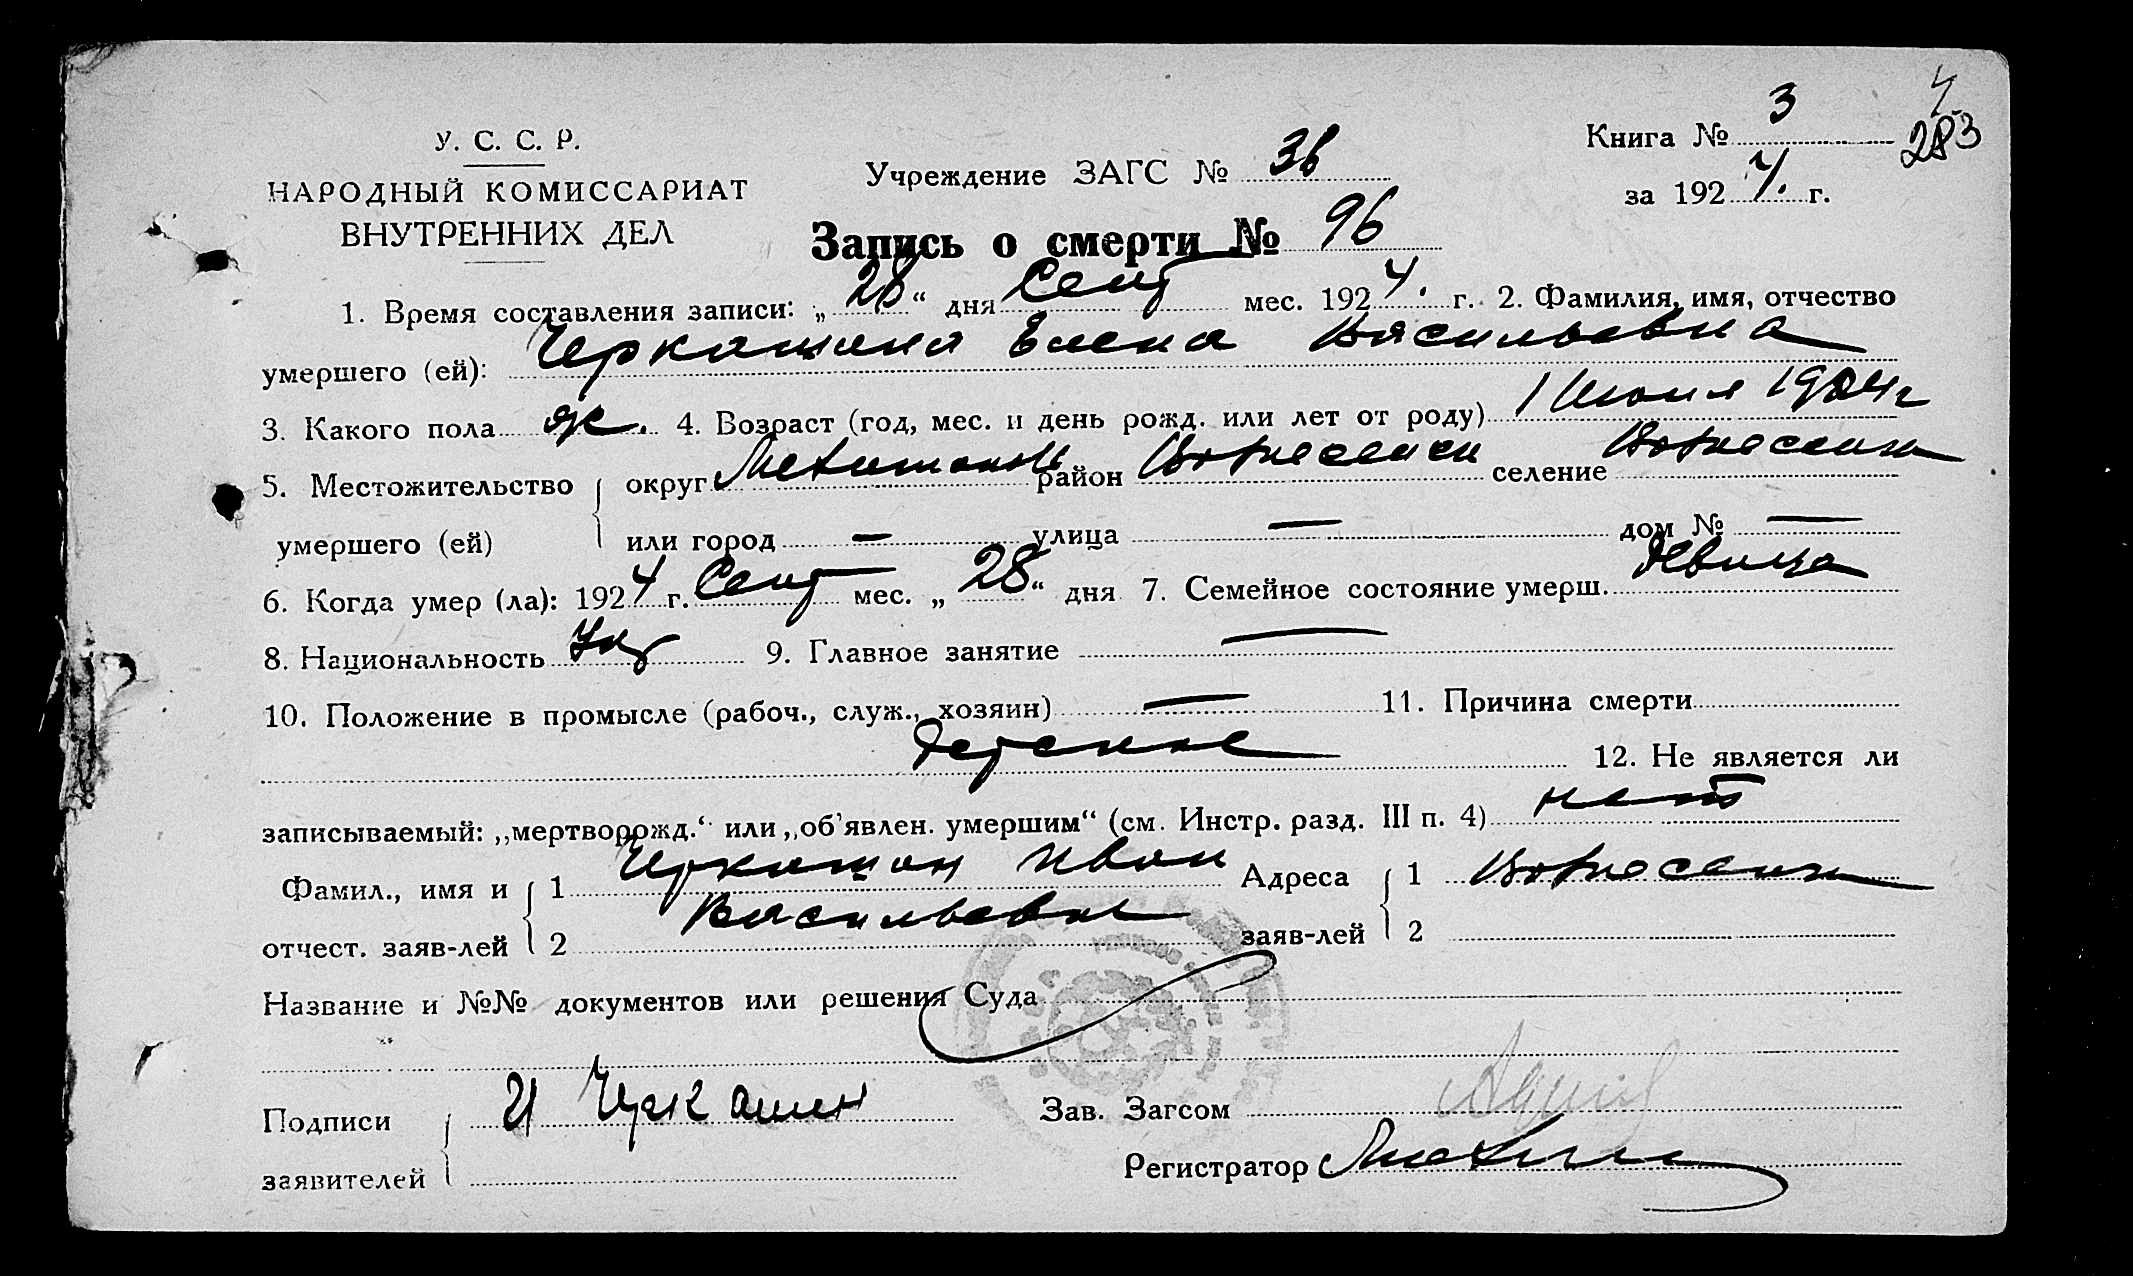 4
283
Книга № 3
за 1924. г.
У. С. С. Р.
НАРОДНЫЙ КОМИССАРИАТ
ВНУТРЕННИХ ДЕЛ
Учреждение ЗАГС № 36
Запись о смерти № 96
1. Время составления записи: „28“ дня Сент мес. 1924. г. 2. Фамилия, имя, отчество
умершего (ей): Черкашина Елена Васильевна
3. Какого пола ж. 4. Возраст (год, мес. и день рожд. или лет от роду) 1 Июня 1924 г
5. Местожительство округ район Вознесенск селение Вознесенк
умершего (ей) или город — улица — дом № —
6. Когда умер (ла): 1924 г. Сент мес. „28“ дня 7. Семейное состояние умерш. девица
8. Национальность Укр 9. Главное занятие —
10. Положение в промысле (рабоч., служ., хозяин) — 11. Причина смерти
Детская 12. Не является ли
записываемый: „мертворожд.“ или „об'явлен. умершим“ (см. Инстр. разд. III п. 4) нет
Фамил., имя и 1 Черкашин Иван Адреса 1 Вознесенк
отчест. заяв-лей 2 Васильевич заяв-лей 2
Название и №№ документов или решения Суда
Подписи И Черкашин Зав. Загсом
заявителей Регистратор